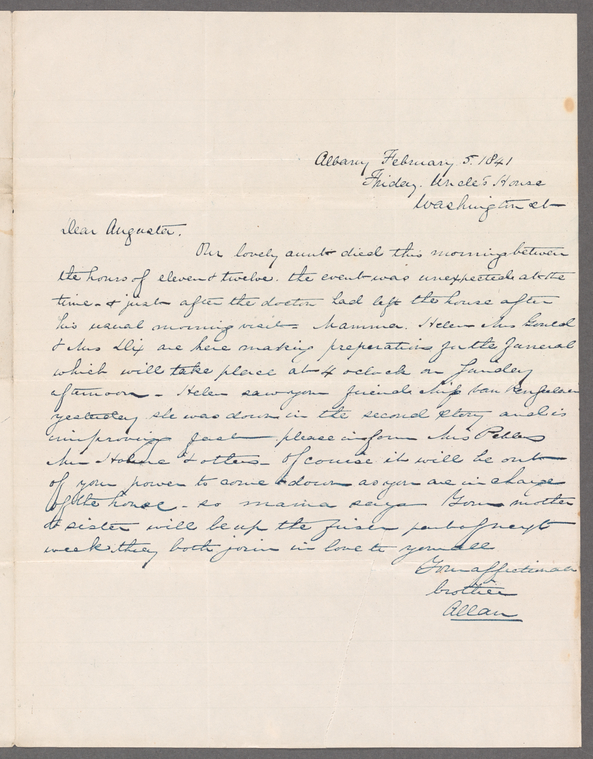 Albany February 5. 1841
Friday. Uncle's House
Washington st
Dear Augusta.
Our lovely aunt died this morning between
the hours of eleven & twelve. the event was unexpected at the
time - & just after the doctor had left the house after
his usual morning visit - Mamma. Helen Mrs Gould
& Mrs Dix are here making preparation for the funeral
which will take place at 4 oclock on Sunday
afternoon - Helen saw your friend Miss Van Rensselaer
yesterday she was down in the second story and is
improving fast please inform Mrs Peebles
& others - Of course it will be out
of your power to come down as you are in charge
of the house - so mama says Your mother
& sister will be up the first part of next
week. they both join in love to you all
Your affectionate
brother
Allan